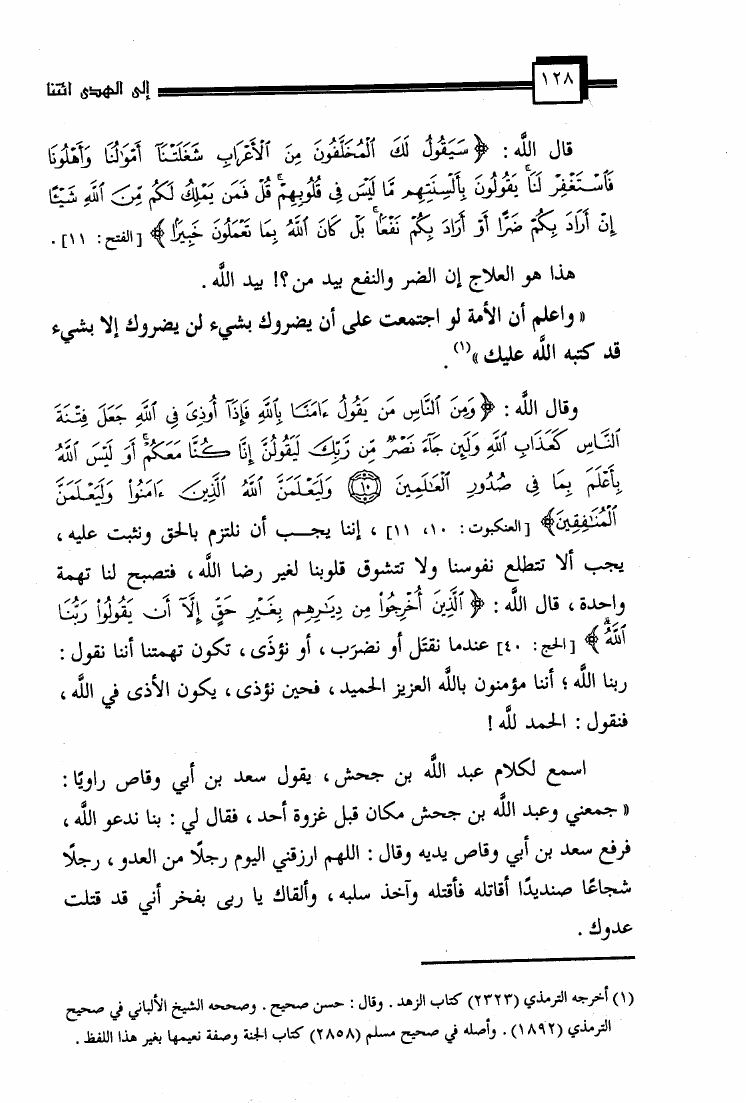 ١٢٨
إلى الهدى ائتنا
قال اللَّه : ﴿ سَيَقُولُ لَكَ ٱلْمُخَلَّفُونَ مِنَ ٱلْأَعْرَابِ شَغَلَتْنَآ أَمْوَٰلُنَا وَأَهْلُونَا
فَٱسْتَغْفِرْ لَنَاۚ يَقُولُونَ بِأَلْسِنَتِهِم مَّا لَيْسَ فِى قُلُوبِهِمْۚ قُلْ فَمَن يَمْلِكُ لَكُم مِّنَ ٱللَّهِ شَيْـًٔا
إِنْ أَرَادَ بِكُمْ ضَرًّا أَوْ أَرَادَ بِكُمْ نَفْعَۢاۚ بَلْ كَانَ ٱللَّهُ بِمَا تَعْمَلُونَ خَبِيرًۢا ﴾ [الفتح: ١١] .
هذا هو العلاج إن الضر والنفع بيد من؟! بيد اللَّه .
« واعلم أن الأمة لو اجتمعت على أن يضروك بشيء لن يضروك إلا بشيء
قد كتبه اللَّه عليك »(١) .
وقال اللَّه : ﴿ وَمِنَ ٱلنَّاسِ مَن يَقُولُ ءَامَنَّا بِٱللَّهِ فَإِذَآ أُوذِىَ فِى ٱللَّهِ جَعَلَ فِتْنَةَ
ٱلنَّاسِ كَعَذَابِ ٱللَّهِ وَلَئِن جَآءَ نَصْرٌ مِّن رَّبِّكَ لَيَقُولُنَّ إِنَّا كُنَّا مَعَكُمْۚ أَوَ لَيْسَ ٱللَّهُ
بِأَعْلَمَ بِمَا فِى صُدُورِ ٱلْعَٰلَمِينَ ۝١٠ وَلَيَعْلَمَنَّ ٱللَّهُ ٱلَّذِينَ ءَامَنُوا۟ وَلَيَعْلَمَنَّ
ٱلْمُنَٰفِقِينَ﴾ [العنكبوت: ١٠، ١١] ، إننا يجـــب أن نلتزم بالحق ونثبت عليه ،
يجب ألا تتطلع نفوسنا ولا تتشوق قلوبنا لغير رضا اللَّه ، فتصبح لنا تهمة
واحدة ، قال اللَّه : ﴿ ٱلَّذِينَ أُخْرِجُوا۟ مِن دِيَٰرِهِم بِغَيْرِ حَقٍّ إِلَّآ أَن يَقُولُوا۟ رَبُّنَا
ٱللَّهُۗ ﴾ [الحج: ٤٠] عندما نقتَل أو نضرَب ، أو نؤذَى ، تكون تهمتنا أننا نقول :
ربنا اللَّه ؛ أننا مؤمنون باللَّه العزيز الحميد ، فحين نؤذى ، يكون الأذى في اللَّه ،
فنقول : الحمد للَّه !
اسمع لكلام عبد اللَّه بن جحش ، يقول سعد بن أبي وقاص راويًا :
« جمعني وعبد اللَّه بن جحش مكان قبل غزوة أحد ، فقال لي : بنا ندعو اللَّه ،
فرفع سعد بن أبي وقاص يديه وقال : اللهم ارزقني اليوم رجلًا من العدو ، رجلًا
شجاعًا صنديدًا أقاتله فأقتله وآخذ سلبه ، وألقاك يا ربى بفخر أني قد قتلت
عدوك .
(١) أخرجه الترمذي (٢٣٢٣) كتاب الزهد . وقال : حسن صحيح . وصححه الشيخ الألباني في صحيح
الترمذي (١٨٩٢) . وأصله في صحيح مسلم (٢٨٥٨) كتاب الجنة وصفة نعيمها بغير هذا اللفظ .